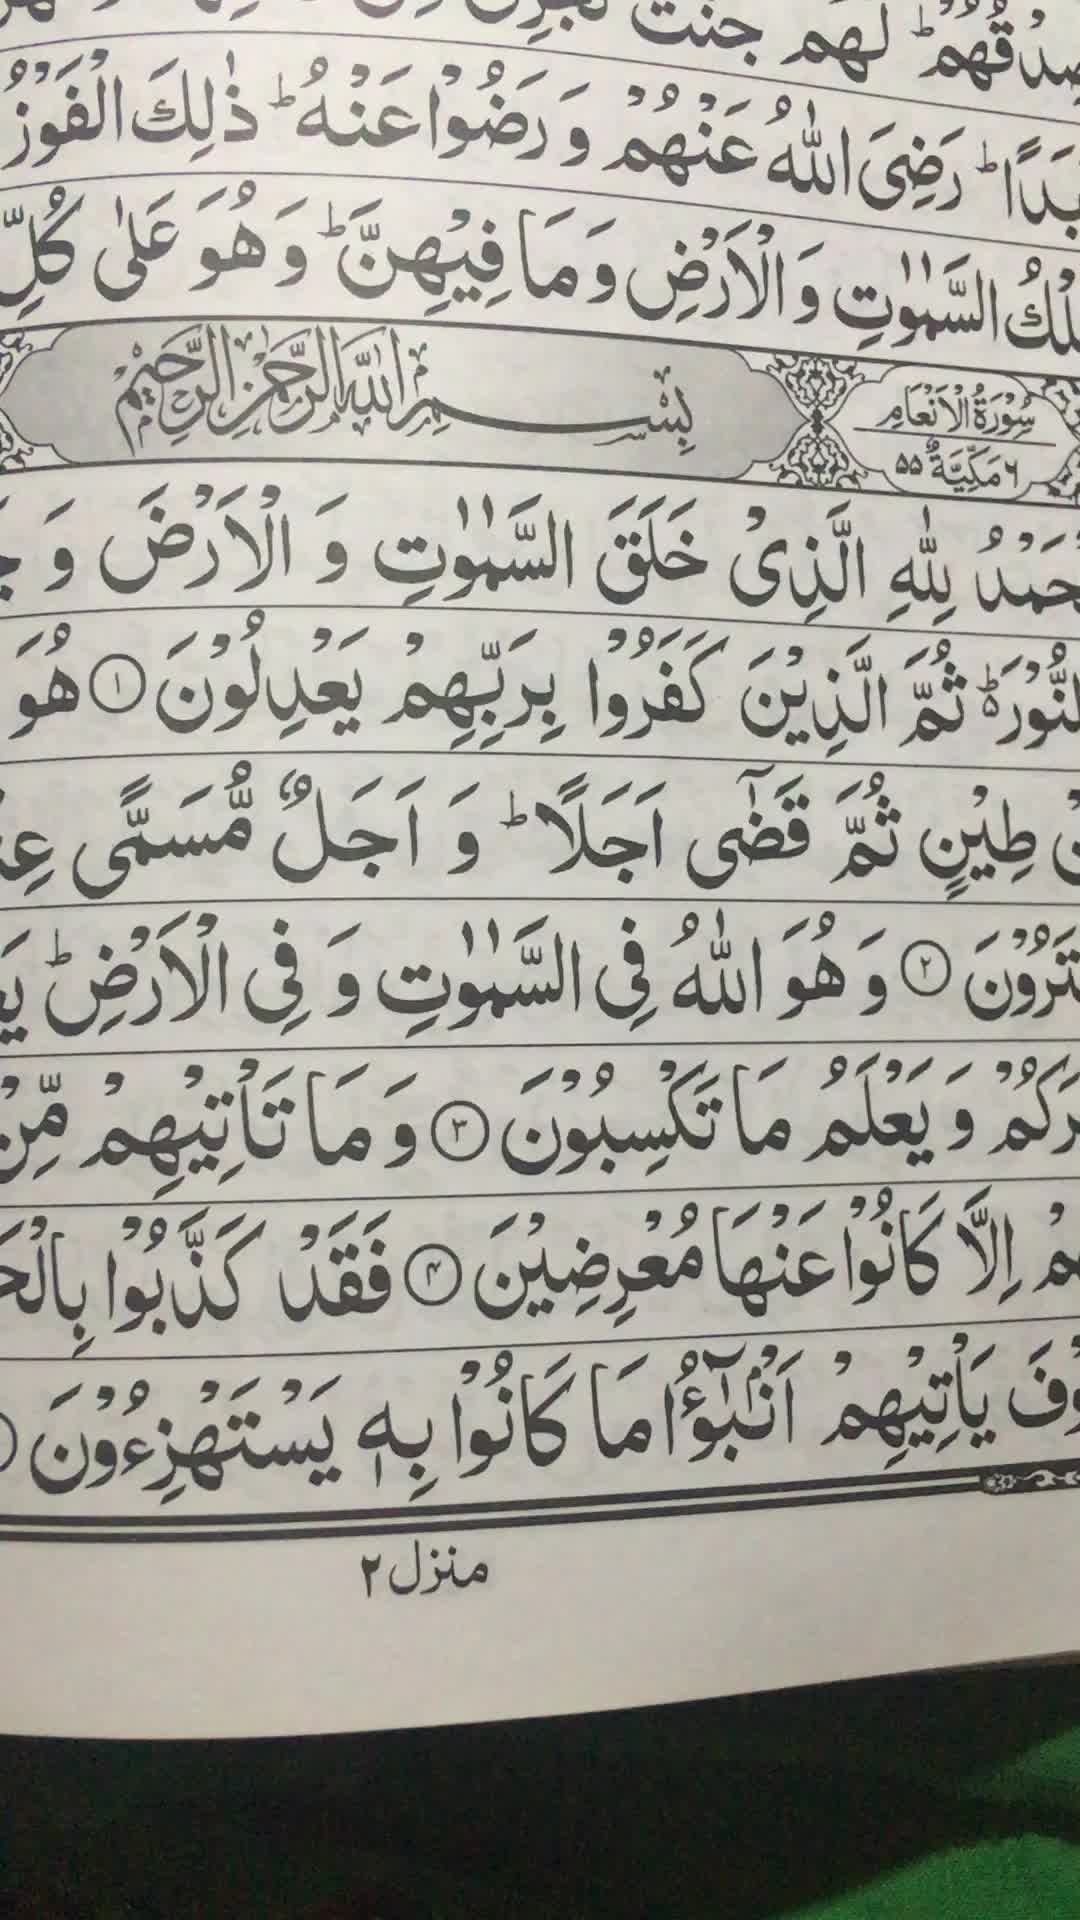 صِدْقُهُمْ ؕ لَهُمْ جَنّٰتٌ تَجْرِیْ
رَضِیَ اللّٰهُ عَنْهُمْ وَ رَضُوْا عَنْهُ ؕ ذٰلِكَ الْفَوْزُ
السَّمٰوٰتِ وَ الْاَرْضِ وَ مَا فِیْهِنَّ ؕ وَ هُوَ عَلٰی كُلِّ
سُوْرَةُ الْاَنْعَامِ
٦ مَكِّیَّةٌ ٥٥
بِسْمِ اللّٰهِ الرَّحْمٰنِ الرَّحِیْمِ
حَمْدُ لِلّٰهِ الَّذِیْ خَلَقَ السَّمٰوٰتِ وَ الْاَرْضَ وَ
النُّوْرَ ؕ۬ ثُمَّ الَّذِیْنَ كَفَرُوْا بِرَبِّهِمْ یَعْدِلُوْنَ ۝۱ هُوَ
طِیْنٍ ثُمَّ قَضٰۤی اَجَلًا ؕ وَ اَجَلٌ مُّسَمًّی
تَرُوْنَ ۝۲ وَ هُوَ اللّٰهُ فِی السَّمٰوٰتِ وَ فِی الْاَرْضِ ؕ
رَكُمْ وَ یَعْلَمُ مَا تَكْسِبُوْنَ ۝۳ وَ مَا تَاْتِیْهِمْ مِّنْ
هِمْ اِلَّا كَانُوْا عَنْهَا مُعْرِضِیْنَ ۝۴ فَقَدْ كَذَّبُوْا بِالْحَ
وْفَ یَاْتِیْهِمْ اَنْۢبٰٓؤُا مَا كَانُوْا بِهٖ یَسْتَهْزِءُوْنَ
منزل ۲